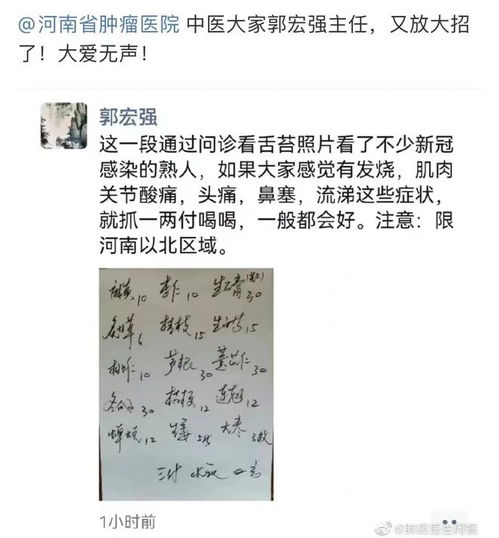 @河南省肿瘤医院 中医大家郭宏强主任，又放大招
了！大爱无声！
郭宏强
这一段通过问诊看舌苔照片看了不少新冠
感染的熟人，如果大家感觉有发烧，肌肉
关节酸痛，头痛，鼻塞，流涕这些症状，
就抓一两付喝喝，一般都会好。注意：限
河南以北区域。
麻黄10 杏仁10 生石膏30
炙草6 桂枝15 15
桃仁10 芦根30 薏苡仁30
冬瓜子30 桔梗12 连翘12
蝉蜕12 生姜 大枣3枚
三付 水
1小时前
@肺癌医生阿振